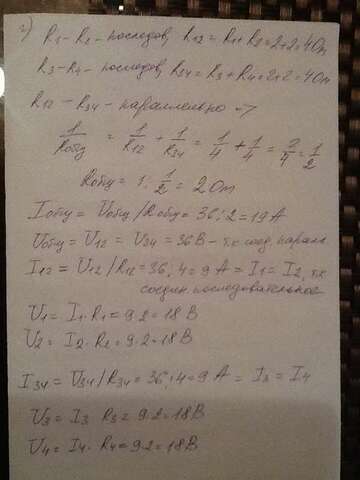 2) R1-R2 - последов, R12 = R1 + R2 = 2+2 = 4 Om
R3-R4 - последов, R34 = R3 + R4 = 2+2 = 4 Om
R12 - R34 - параллельно ->
1/Rобщ = 1/R12 + 1/R34 = 1/4 + 1/4 = 2/4 = 1/2
Rобщ = 1 : 1/2 = 2 Om
Iобщ = Uобщ / Rобщ = 36 : 2 = 19 A
Uобщ = U12 = U34 = 36 В - т.к соед. парал
I12 = U12 / R12 = 36 : 4 = 9 A = I1 = I2, т.к
соедин. последовательное
U1 = I1 · R1 = 9·2 = 18 В
U2 = I2 · R2 = 9·2 = 18 В
I34 = U34 / R34 = 36 : 4 = 9 A = I3 = I4
U3 = I3 · R3 = 9·2 = 18 В
U4 = I4 · R4 = 9·2 = 18 В